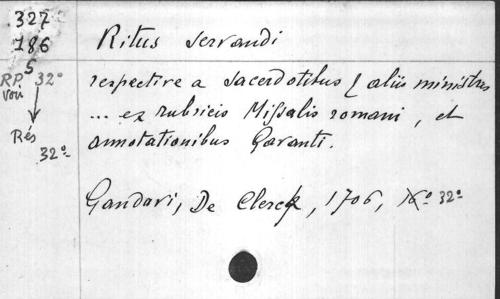 327
186
S
RP 32°
voir
Rés
32°
Ritus servandi
respective a sacerdotibus & aliis ministris
... ex rubricis Missalis romani, et
annotationibus Gavanti.
Gandavi, De Clerck, 1706, 16° 32°